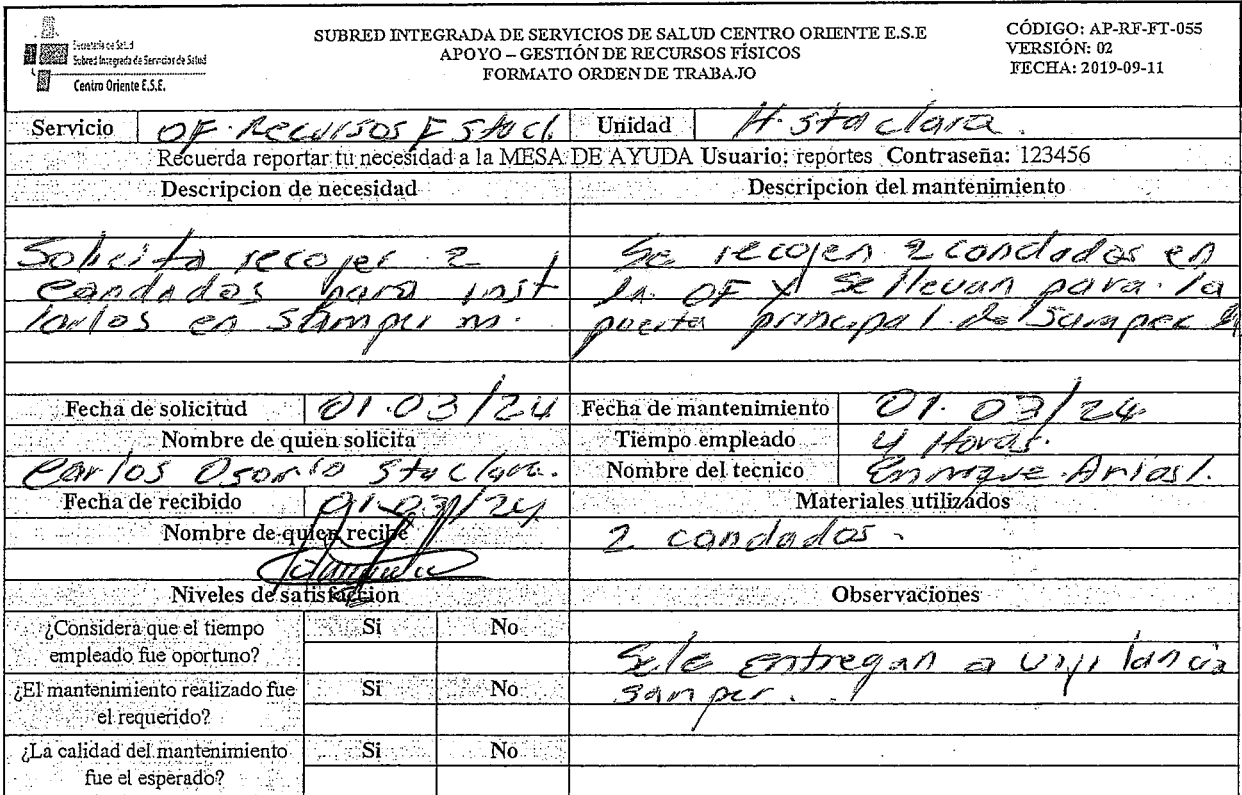 Secretaría de Salud
Subred Integrada de Servicios de Salud
Centro Oriente E.S.E.
SUBRED INTEGRADA DE SERVICIOS DE SALUD CENTRO ORIENTE E.S.E
APOYO – GESTIÓN DE RECURSOS FÍSICOS
FORMATO ORDEN DE TRABAJO
CÓDIGO: AP-RF-FT-055
VERSIÓN: 02
FECHA: 2019-09-11
Servicio OF. Recursos F Sta cl. Unidad H. Sta clara.
Recuerda reportar tu necesidad a la MESA DE AYUDA Usuario: reportes Contraseña: 123456
Descripcion de necesidad
Solicita recojer 2
candados para inst
larlos en Samper m.
Descripcion del mantenimiento
Se recojen 2 candados en
la OF y se llevan para la
puerta principal de Samper M
Fecha de solicitud 01.03/24
Fecha de mantenimiento 01.03/24
Nombre de quien solicita
Carlos Osorio Sta clara.
Tiempo empleado 4 Horas.
Nombre del tecnico Enrique Arias l.
Fecha de recibido 01.03/24
Nombre de quien recibe
Materiales utilizados
2 candados.
Niveles de satisfaccion
Observaciones
¿Considera que el tiempo
empleado fue oportuno?
Si No
¿El mantenimiento realizado fue
el requerido?
Si No
¿La calidad del mantenimiento
fue el esperado?
Si No
Se le entregan a vijilancia
samper.